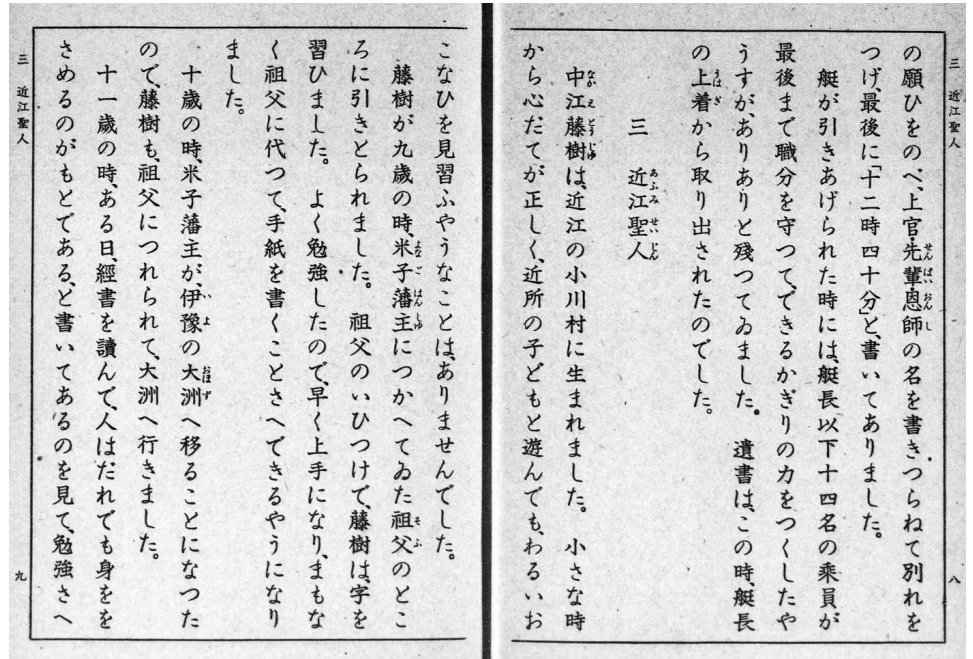 三 近江聖人
八
の願ひをのべ、上官・先輩・恩師の名を書きつらねて別れを
つげ、最後に「十二時四十分」と、書いてありました。
艇が引きあげられた時には、艇長以下十四名の乘員が
最後まで職分を守つて、できるかぎりの力をつくしたや
うすが、ありありと殘つてゐました。遺書は、この時、艇長
の上着から取り出されたのでした。
三 近江聖人
中江藤樹は、近江の小川村に生まれました。小さな時
から心だてが正しく、近所の子どもと遊んでも、わるいお
こなひを見習ふやうなことは、ありませんでした。
藤樹が九歳の時、米子藩主につかへてゐた祖父のとこ
ろに引きとられました。祖父のいひつけで、藤樹は、字を
習ひました。よく勉強したので、早く上手になり、まもな
く祖父に代つて、手紙を書くことさへできるやうになり
ました。
十歳の時、米子藩主が、伊豫の大洲へ移ることになつた
ので、藤樹も、祖父につれられて、大洲へ行きました。
十一歳の時、ある日、經書を讀んで、人はだれでも身をを
さめるのがもとである、と書いてあるのを見て、勉強さへ
三 近江聖人
九